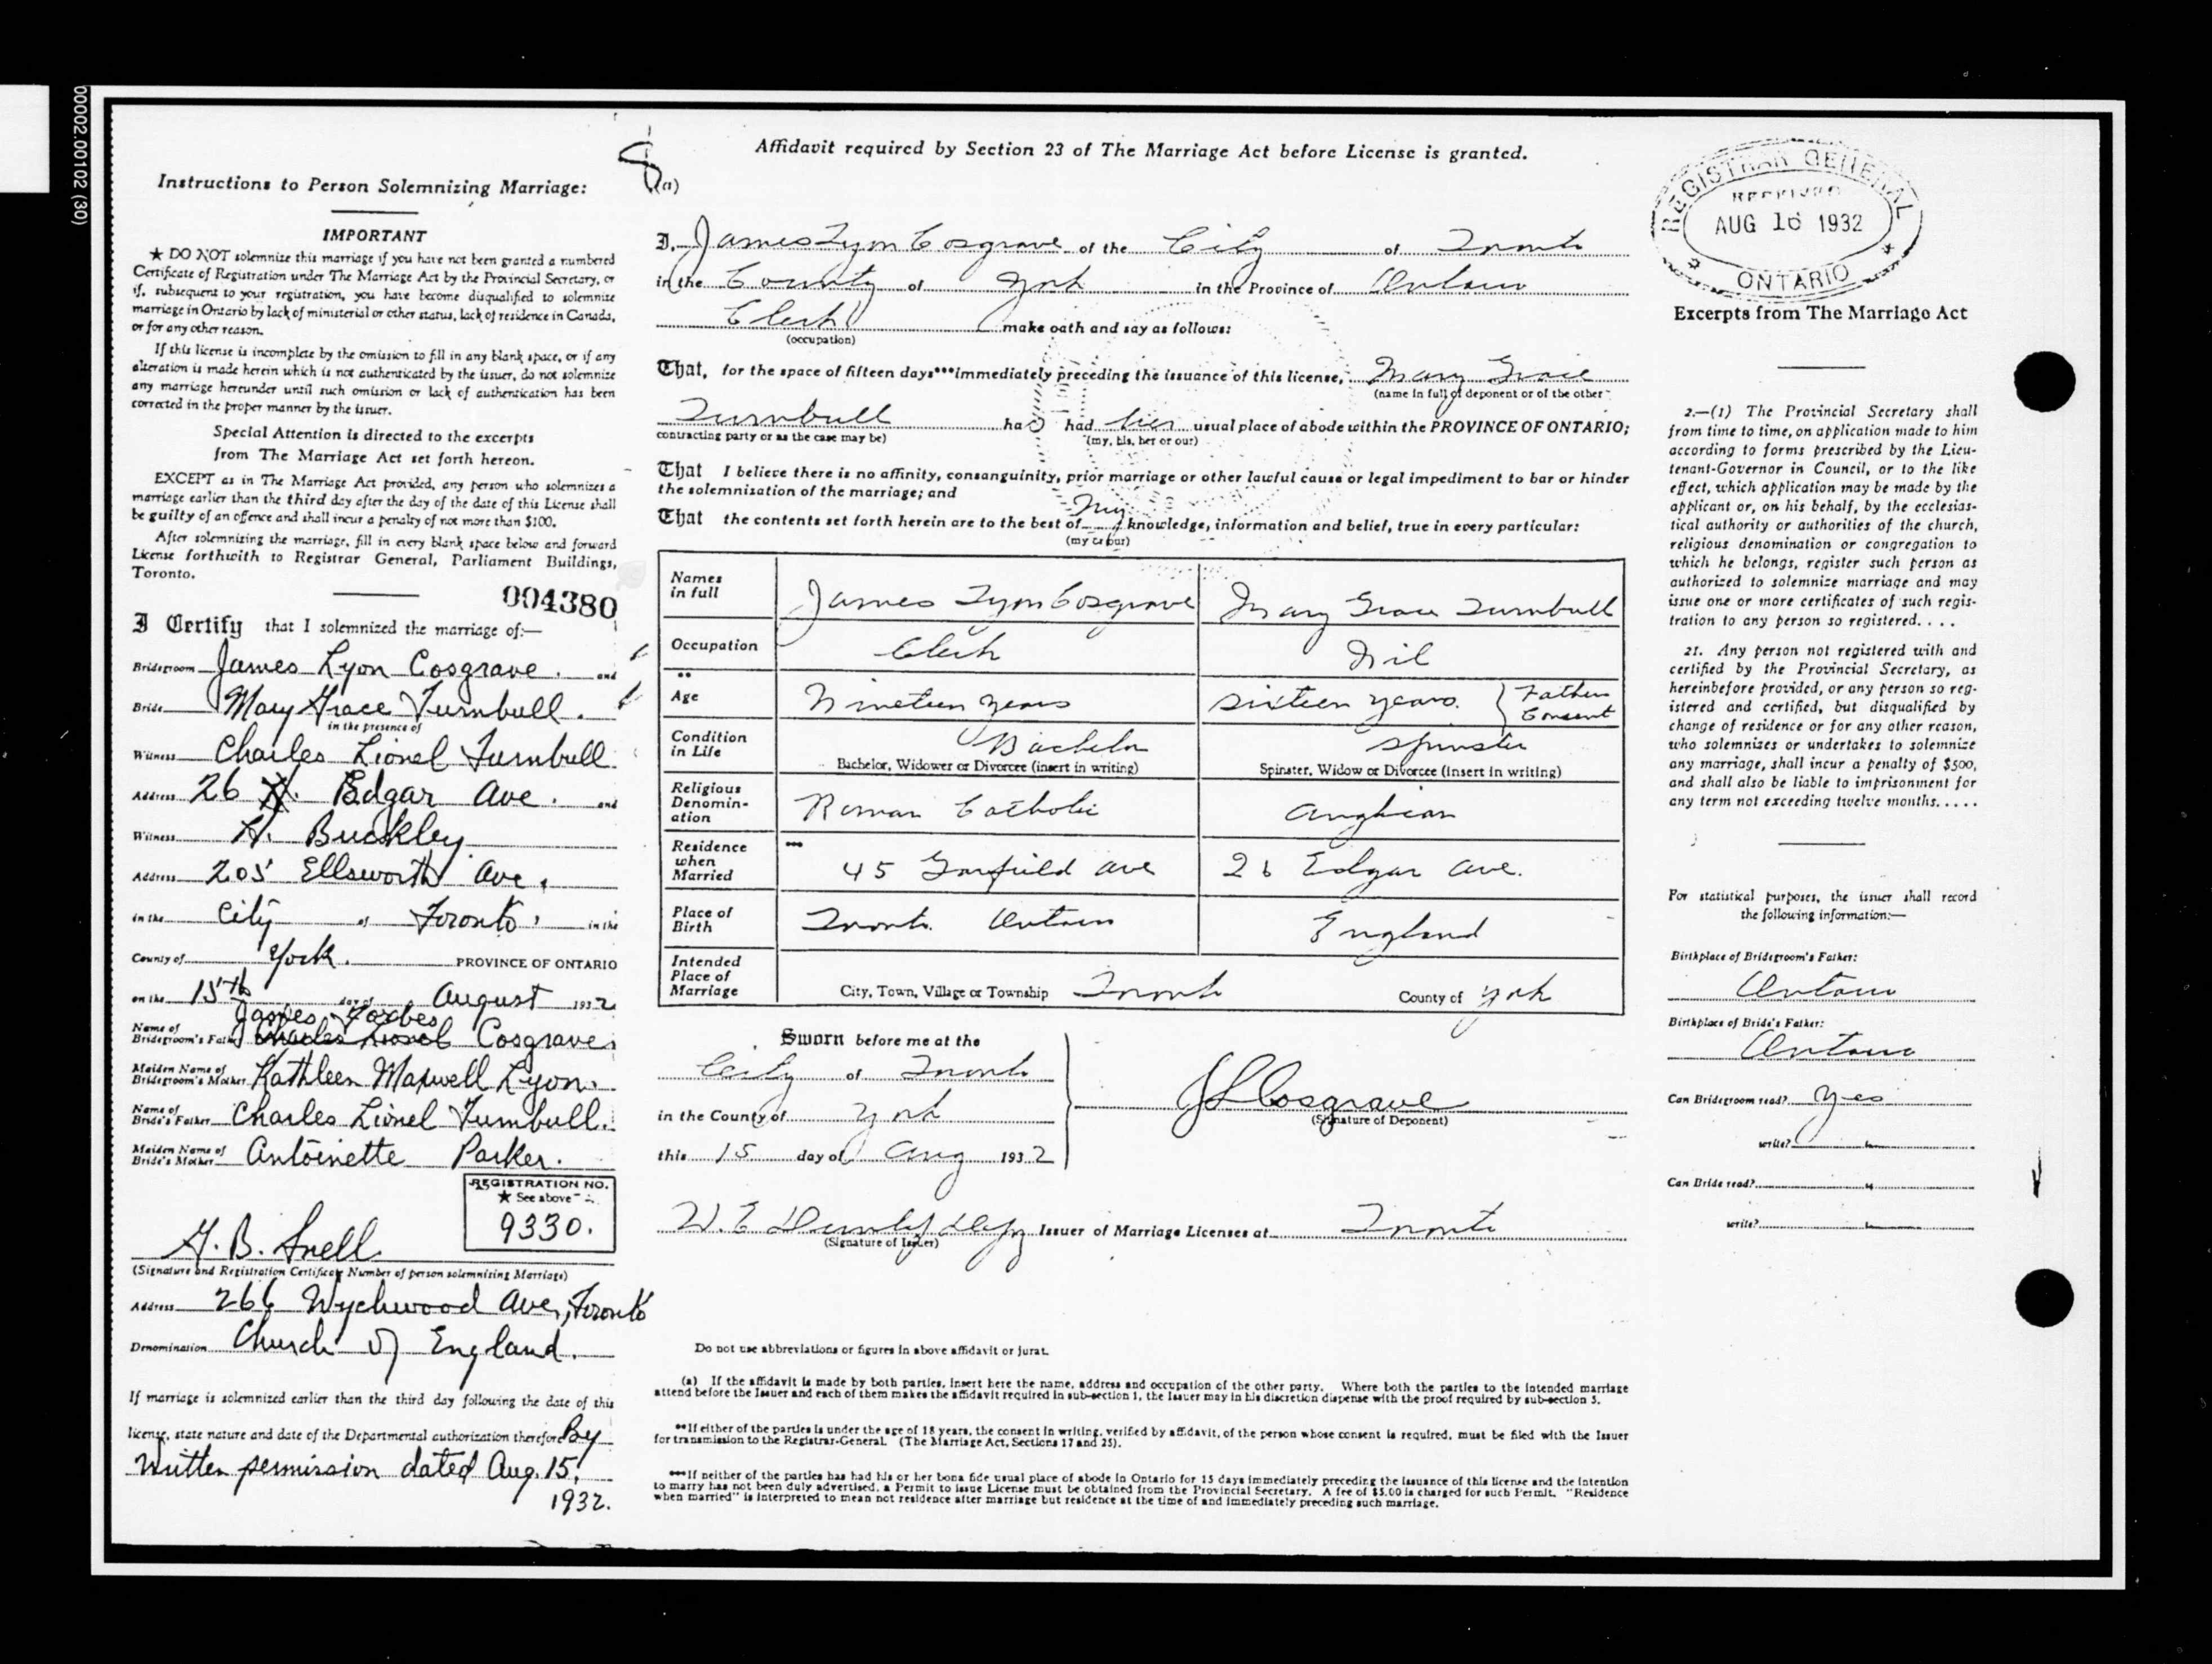 00002.00102 (30)
Instructions to Person Solemnizing Marriage:
IMPORTANT
★ DO NOT solemnize this marriage if you have not been granted a numbered
Certificate of Registration under The Marriage Act by the Provincial Secretary, or
if, subsequent to your registration, you have become disqualified to solemnize
marriage in Ontario by lack of ministerial or other status, lack of residence in Canada,
or for any other reason.
If this license is incomplete by the omission to fill in any blank space, or if any
alteration is made herein which is not authenticated by the issuer, do not solemnize
any marriage hereunder until such omission or lack of authentication has been
corrected in the proper manner by the issuer.
Special Attention is directed to the excerpts
from The Marriage Act set forth hereon.
EXCEPT as in The Marriage Act provided, any person who solemnizes a
marriage earlier than the third day after the day of the date of this License shall
be guilty of an offence and shall incur a penalty of not more than $100.
After solemnizing the marriage, fill in every blank space below and forward
License forthwith to Registrar General, Parliament Buildings,
Toronto.
004380
I Certify that I solemnized the marriage of:—
Bridegroom James Lyon Cosgrave. and
Bride Mary Grace Turnbull.
in the presence of
Witness Charles Lionel Turnbull.
Address 26 Edgar Ave. and
Witness H. Buckley
Address 205 Ellsworth Ave.
in the City of Toronto, in the
County of York. PROVINCE OF ONTARIO
on the 15th day of August 1932
James Forbes
Name of Bridegroom's Father Charles Lionel Cosgrave
Maiden Name of Bridegroom's Mother Kathleen Maxwell Lyon.
Name of Bride's Father Charles Lionel Turnbull.
Maiden Name of Bride's Mother Antoinette Parker.
REGISTRATION NO.
★ See above
9330.
H. B. Snell
(Signature and Registration Certificate Number of person solemnizing Marriage)
Address 266 Wychwood Ave, Toronto
Denomination Church of England.
If marriage is solemnized earlier than the third day following the date of this
license, state nature and date of the Departmental authorization therefore By
Written permission dated Aug. 15,
1932.
Affidavit required by Section 23 of The Marriage Act before License is granted.
(a)
I, James Lyon Cosgrave of the City of Toronto
in the County of York in the Province of Ontario
Clerk make oath and say as follows:
(occupation)
That, for the space of fifteen days***immediately preceding the issuance of this license, Mary Grace
(name in full of deponent or of the other
Turnbull has had her usual place of abode within the PROVINCE OF ONTARIO;
contracting party or as the case may be) (my, his, her or our)
That I believe there is no affinity, consanguinity, prior marriage or other lawful cause or legal impediment to bar or hinder
the solemnization of the marriage; and
That the contents set forth herein are to the best of my knowledge, information and belief, true in every particular:
(my or our)
Names in full James Lyon Cosgrave Mary Grace Turnbull
Occupation Clerk Nil
**
Age Nineteen years sixteen years. Father Consent
Condition in Life Bachelor Spinster
Bachelor, Widower or Divorcee (insert in writing) Spinster, Widow or Divorcee (insert in writing)
Religious Denomin-ation Roman Catholic Anglican
Residence when Married *** 45 Garfield Ave 26 Edgar Ave.
Place of Birth Toronto. Ontario England
Intended Place of Marriage City, Town, Village or Township Toronto County of York
Sworn before me at the
City of Toronto
in the County of York
this 15 day of Aug 1932
JLCosgrave
(Signature of Deponent)
W. E. Issuer of Marriage Licenses at Toronto
(Signature of Issuer)
Do not use abbreviations or figures in above affidavit or jurat.
(a) If the affidavit is made by both parties, insert here the name, address and occupation of the other party. Where both the parties to the intended marriage
attend before the Issuer and each of them makes the affidavit required in sub-section 1, the Issuer may in his discretion dispense with the proof required by sub-section 5.
**If either of the parties is under the age of 18 years, the consent in writing, verified by affidavit, of the person whose consent is required, must be filed with the Issuer
for transmission to the Registrar-General. (The Marriage Act, Sections 17 and 25).
***If neither of the parties has had his or her bona fide usual place of abode in Ontario for 15 days immediately preceding the issuance of this license and the intention
to marry has not been duly advertised, a Permit to issue License must be obtained from the Provincial Secretary. A fee of $5.00 is charged for such Permit. "Residence
when married" is interpreted to mean not residence after marriage but residence at the time of and immediately preceding such marriage.
REGISTRAR GENERAL
RECEIVED
AUG 16 1932
ONTARIO
Excerpts from The Marriage Act
2.—(1) The Provincial Secretary shall
from time to time, on application made to him
according to forms prescribed by the Lieu-
tenant-Governor in Council, or to the like
effect, which application may be made by the
applicant or, on his behalf, by the ecclesias-
tical authority or authorities of the church,
religious denomination or congregation to
which he belongs, register such person as
authorized to solemnize marriage and may
issue one or more certificates of such regis-
tration to any person so registered. . . .
21. Any person not registered with and
certified by the Provincial Secretary, as
hereinbefore provided, or any person so reg-
istered and certified, but disqualified by
change of residence or for any other reason,
who solemnizes or undertakes to solemnize
any marriage, shall incur a penalty of $500,
and shall also be liable to imprisonment for
any term not exceeding twelve months. . . . .
For statistical purposes, the issuer shall record
the following information:—
Birthplace of Bridegroom's Father:
Ontario
Birthplace of Bride's Father:
Ontario
Can Bridegroom read? Yes
write? "
Can Bride read? "
write? "